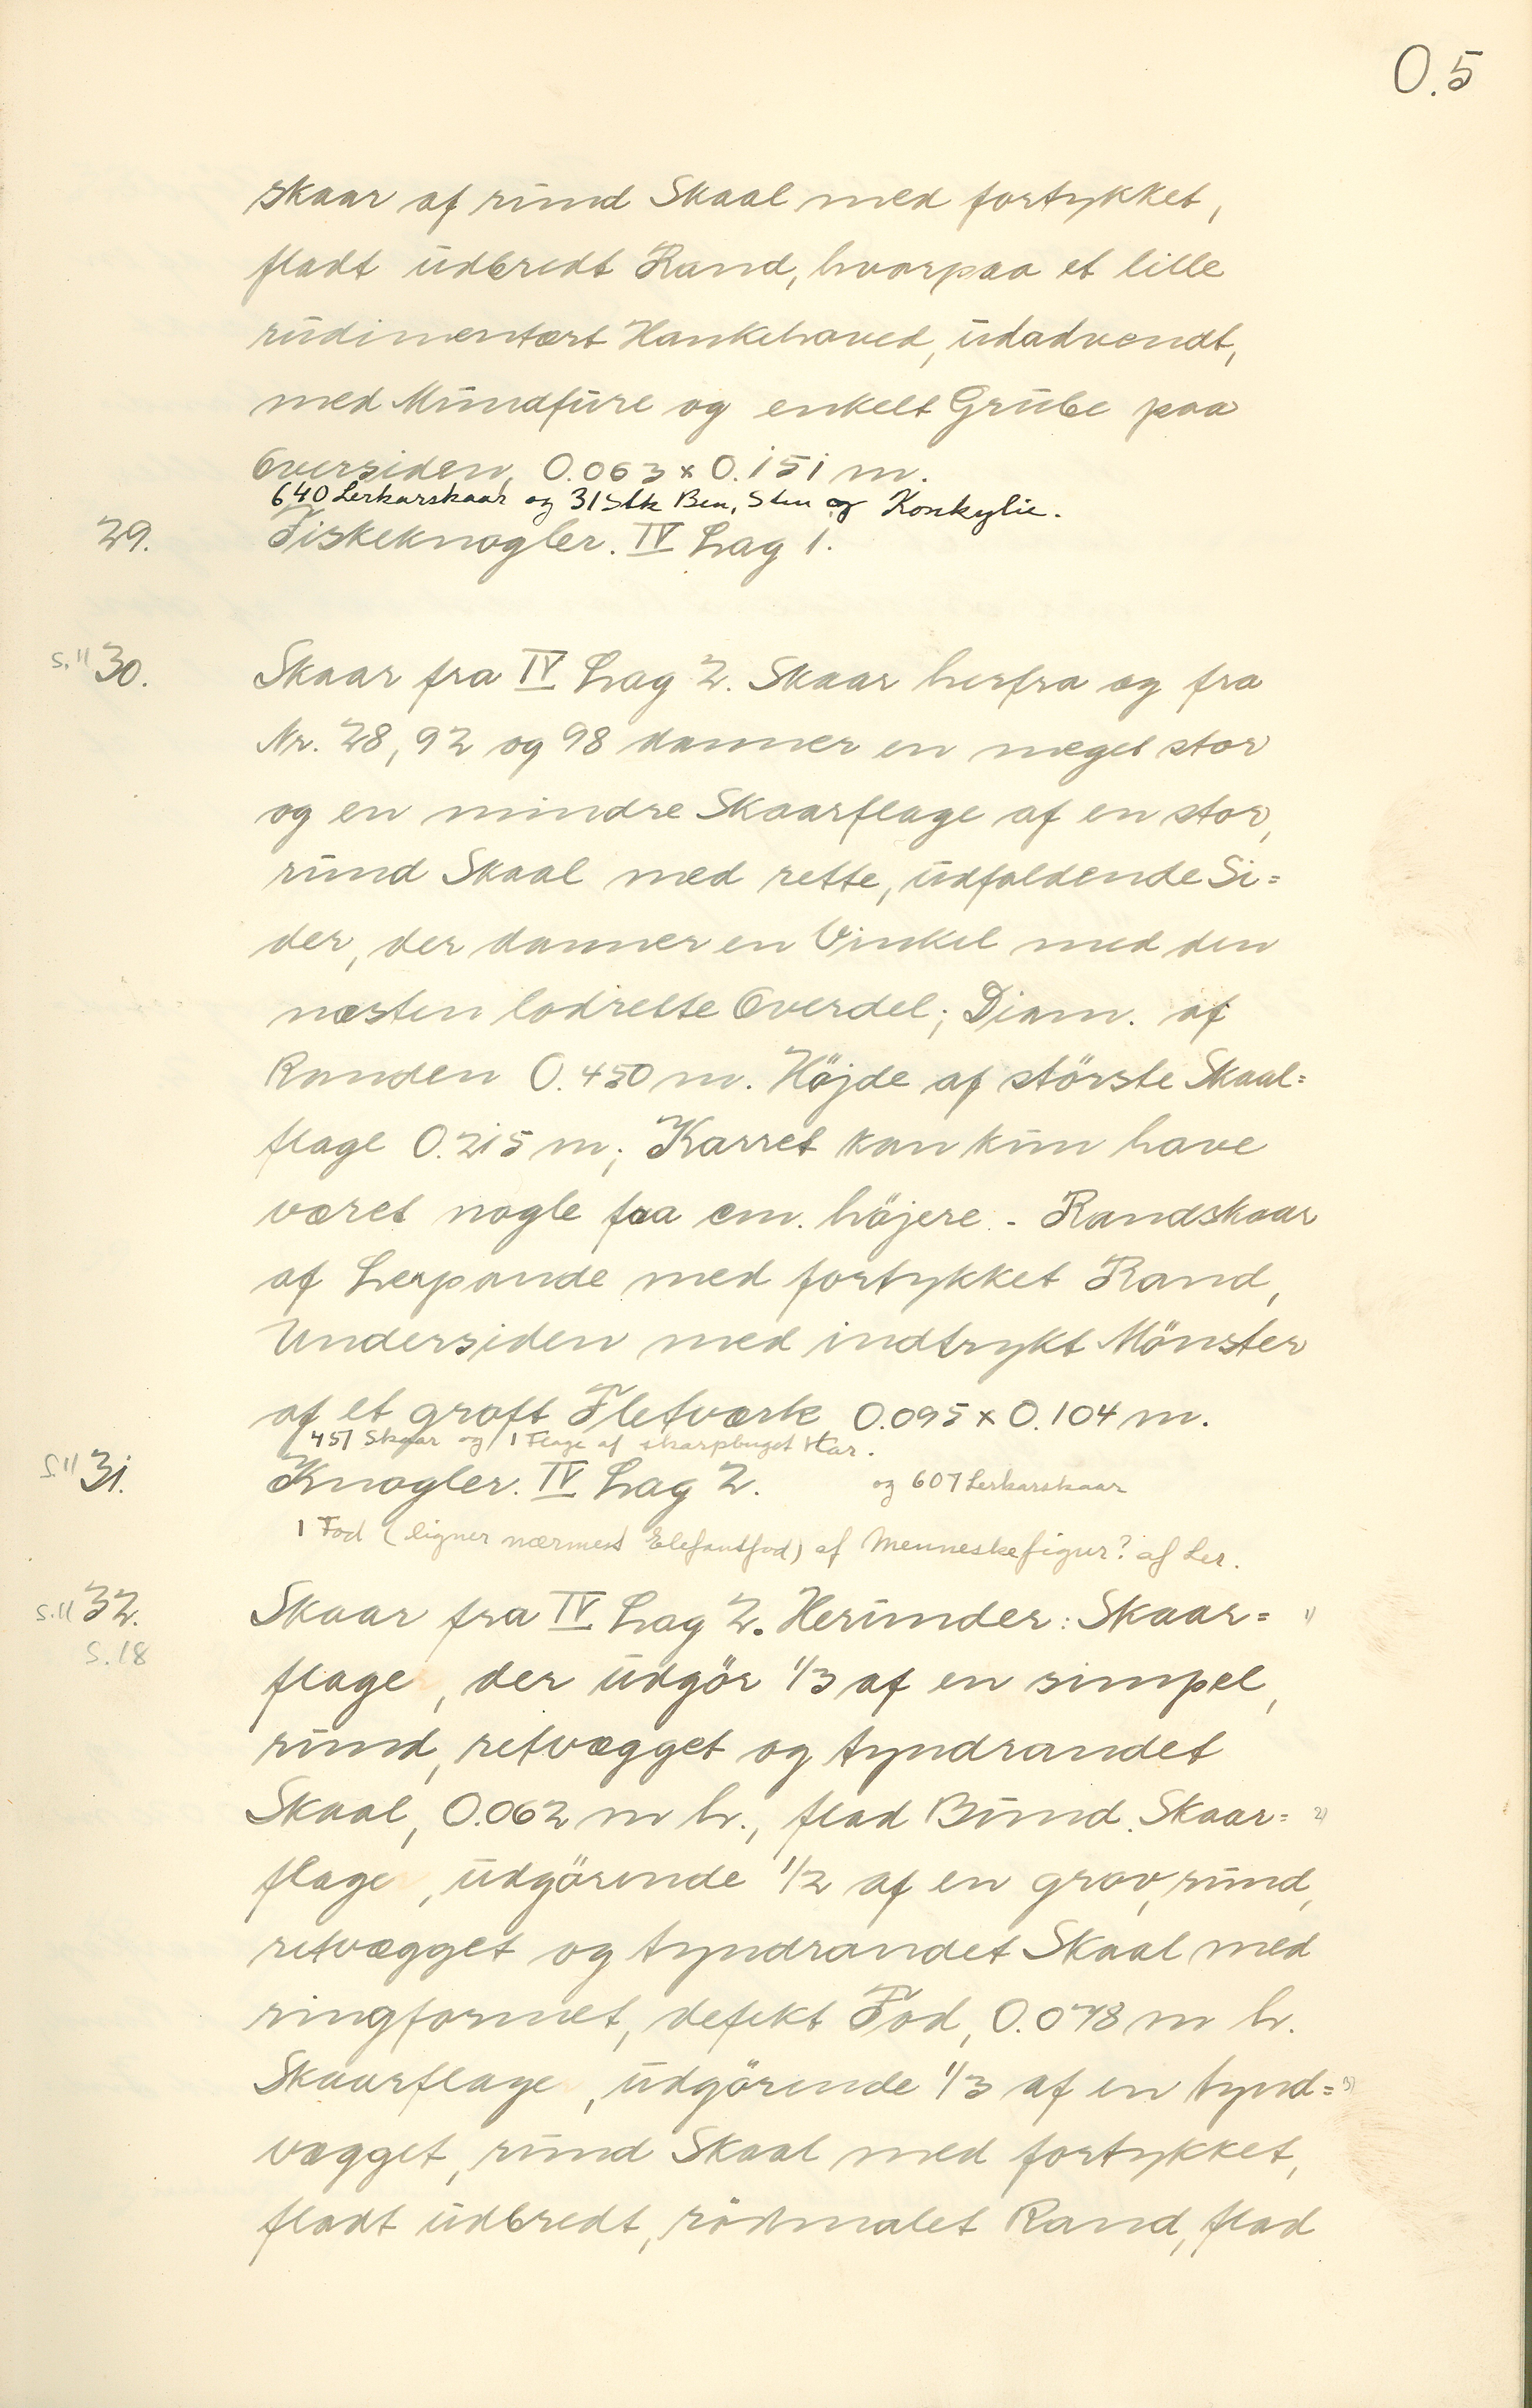 O.5
skaar af rund Skaal med fortykket,
fladt udbredt Rand, hvorpaa et lille
rudimentært Hankehoved, udadvendt,
med Mundfure og enkelt Grube paa
Oversiden, 0.063 x 0.151 m.
640 Lerkarskaar og 31 Stk Ben, Sten og Konkylie.
29. Fiskeknogler. IV Lag 1.
S.11 30. Skaar fra IV Lag 2. Skaar herfra og fra
Nr. 28, 92 og 98 danner en meget stor
og en mindre Skaarflage af en stor,
rund Skaal med rette, udfaldende Si=
der, der danner en Vinkel med den
næsten lodrette Overdel; Diam. af
Randen 0.450 m. Höjde af störste Skaal=
flage 0.215 m; Karret kan kun have
været nogle faa cm. höjere. - Randskaar
af Lerpande med fortykket Rand,
Undersiden med indtrykt Mönster
af et groft Fletværk 0.095 x 0.104 m.
451 Skaar og 1 Flage af skarpbuget Kar.
S.11 31. Knogler. IV Lag 2. og 607 Lerkarskaar
1 Fod (ligner nærmest Elefantfod) af Menneskefigur? af Ler.
S.11 32. Skaar fra IV Lag 2. Herunder: Skaar= 1)
S.18
flage, der udgör 1/3 af en simpel,
rund, retvægget og tyndrandet
Skaal, 0.062 m h., flad Bund. Skaar= 2)
flage, udgörende 1/2 af en grov, rund,
retvægget og tyndrandet Skaal med
ringformet, defekt Fod, 0.078 m h.
Skaarflage, udgörende 1/3 af en tynd= 3)
vægget, rund Skaal med fortykket,
fladt udbredt, rödmalet Rand, flad